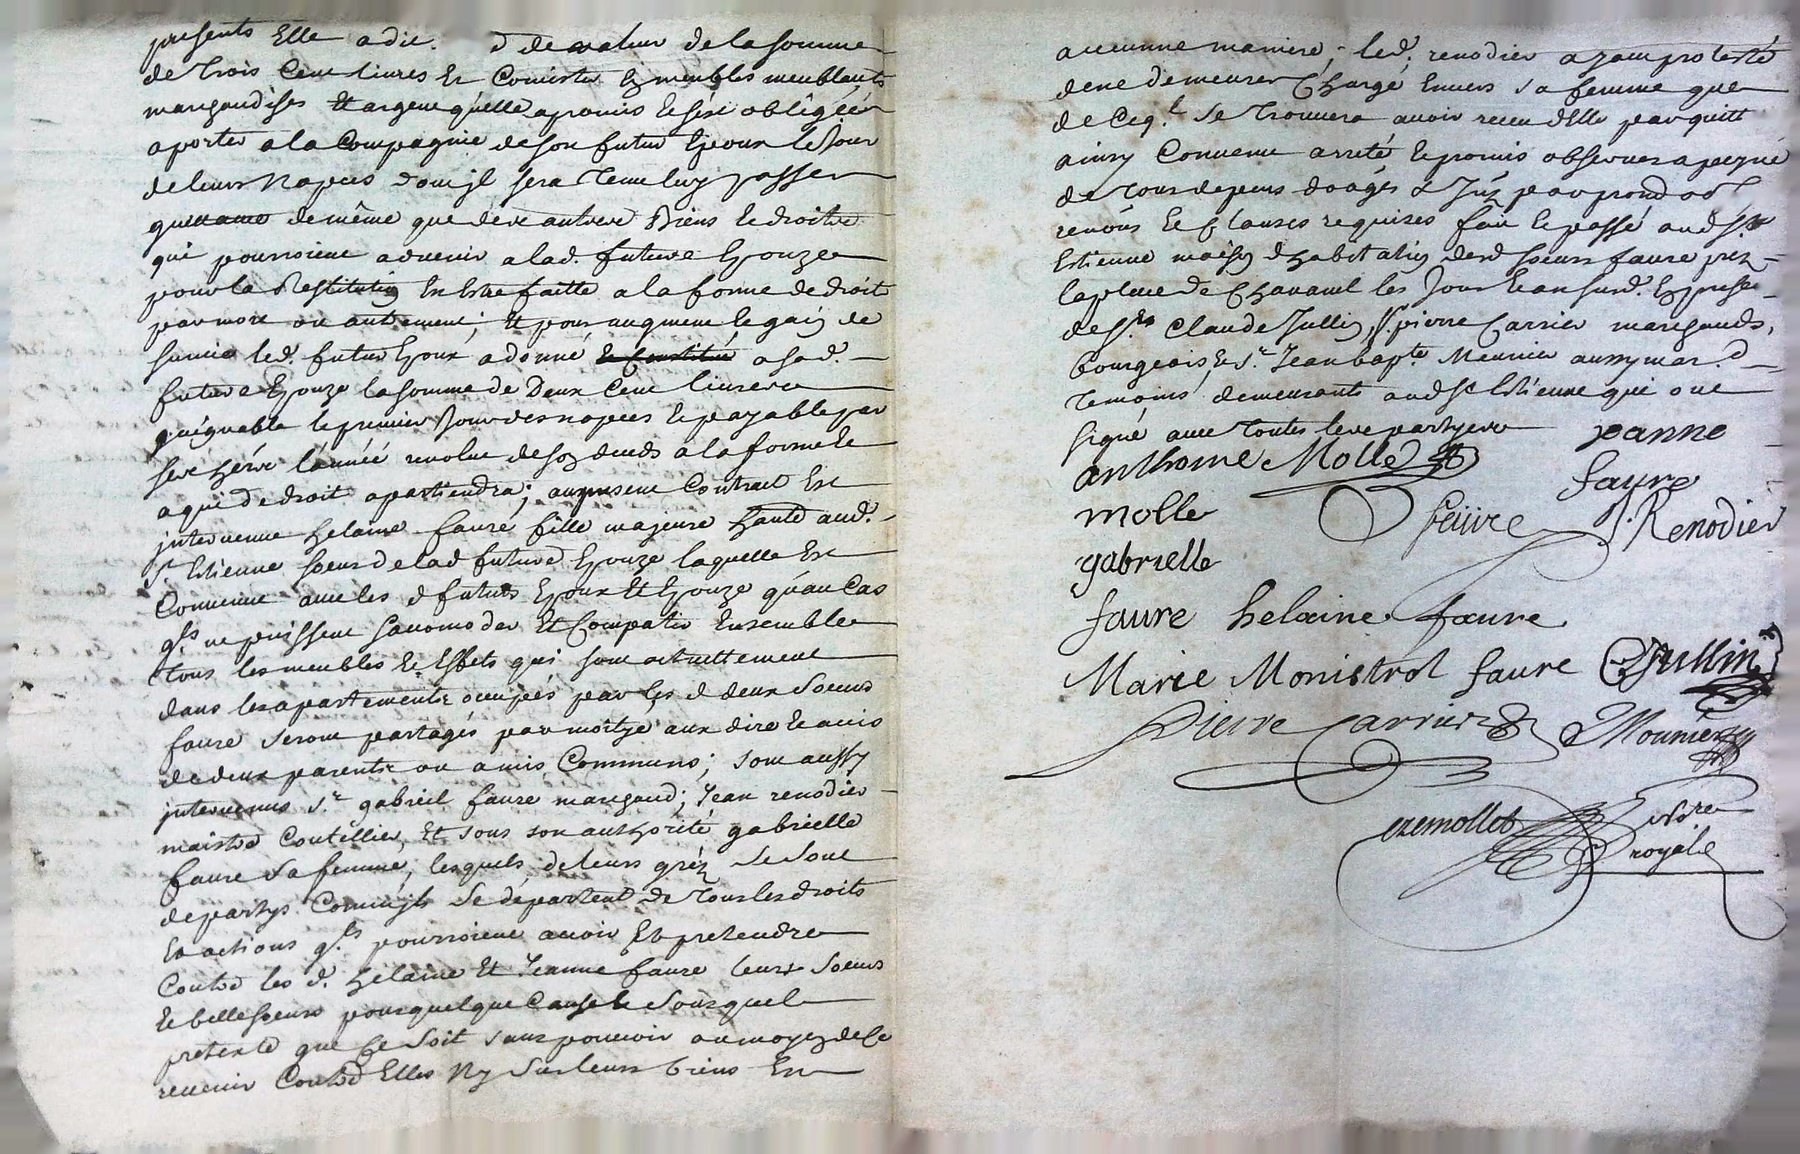 presents Elle a dit. d de valeur de la somme
de trois Cent livres Et Consister En meubles meublants
marchandises Et argent qu'elle a promis Et s'est obligée
aporter a la Compagnie de son futur Epoux le Jour
de leurs Nopces dont jl sera tenu luy passer
quittance de même que de ses autres Biens Et droits
qui pourroient advenir a lad. future Epouze
pour la Restitution En Estre faitte a la forme de droit
par mort ou autrement; Et pour augment Et gain de
survie led. futur Epoux a donné Et Constitué a sad.
future Epouze la somme de Deux Cent livres
gaignable le premier Jour des nopces Et payable par
ses hérs l'année revolue de son deceds a la forme Et
a qui de droit apartiendra; au present Contract Est
intervenue helaine faure fille majeure hante aud.
St. Estienne soeur de lad future Epouze laquelle Est
Convenue avec les d futurs Epoux Et Epouze qu'au Cas
qls ne puissent s'acomoder Et Compatir Ensemble
tous les meubles Et Effets qui sont actuellement
dans les apartements ocupés par les d deux Soeurs
faure seront partagés par moitye aux dire Et avis
de deux parents ou amis Communs; sont aussy
intervenus Sr. gabriel faure marchand; Jean renodier
maistre Coutellier, Et sous son authorité gabrielle
faure sa femme, lesquels de leurs gréz se sont
departys Comme jls se départent de tous les droits
Et actions qls pourroient avoir Et pretendre
Contre les d. helaine Et Jeanne faure leurs Soeurs
Et belle soeurs pour quelque Cause Et sous quel
pretexte que Ce Soit sans pouvoir au moyen de Ce
revenir Contre Elles Ny sur leurs biens En
aucunne maniere; led. renodier ayant protesté
de ne demeurer Chargé Envers sa femme que
de Ce ql. Se trouvera avoir receu d'Elle par quitt
ainsy Convenu arreté Et promis observer a peyne
de tous depens
renons Et Clauses requises fait Et passé aud St
Estienne maison d'habitation desd soeurs faure prez
la place de Chavanel les Jour Et an susd. En presce
de Srs Claude Jullin, Sr. pierre Carrier marchands,
bourgeois, Et Sr. Jean bapte. Meunier aussy mard
temoins demeurants aud St Estienne qui ont
signé avec toutes les partyes janne
anthoine Molle fayre
molle feiure J. Renodier
gabrielle
faure helaine faure
Marie Monistrol faure CJullin
Pierre Carrier Mounier
royale